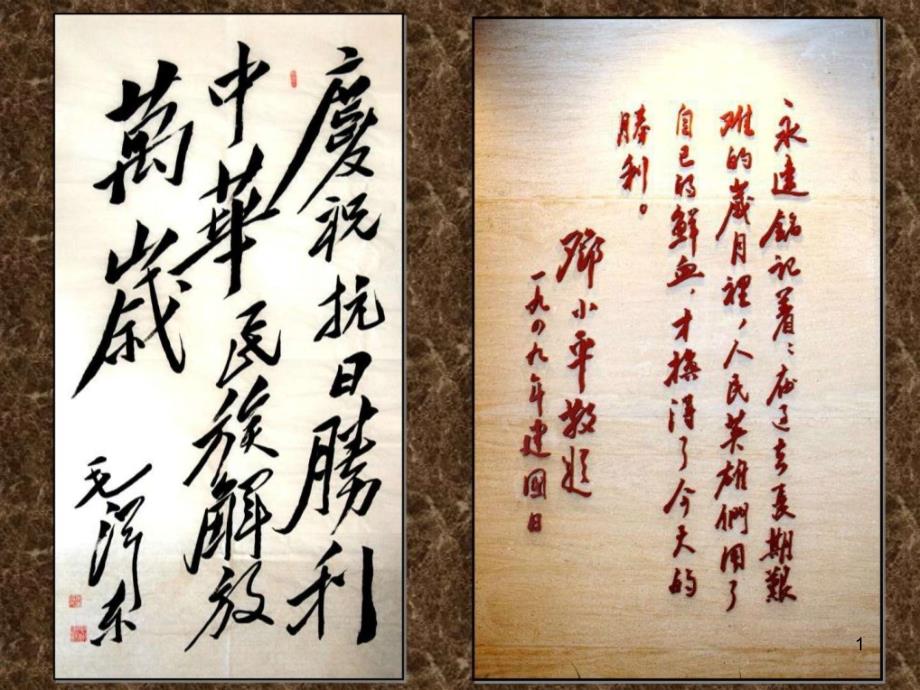 慶祝抗日勝利
中華民族解放
萬歲
毛澤东
永遠銘記着:在过去長期艱
难的歲月裡,人民英雄們用了
自己的鮮血,才換得了今天的
勝利。
鄧小平敬題
一九四九年建國日
1